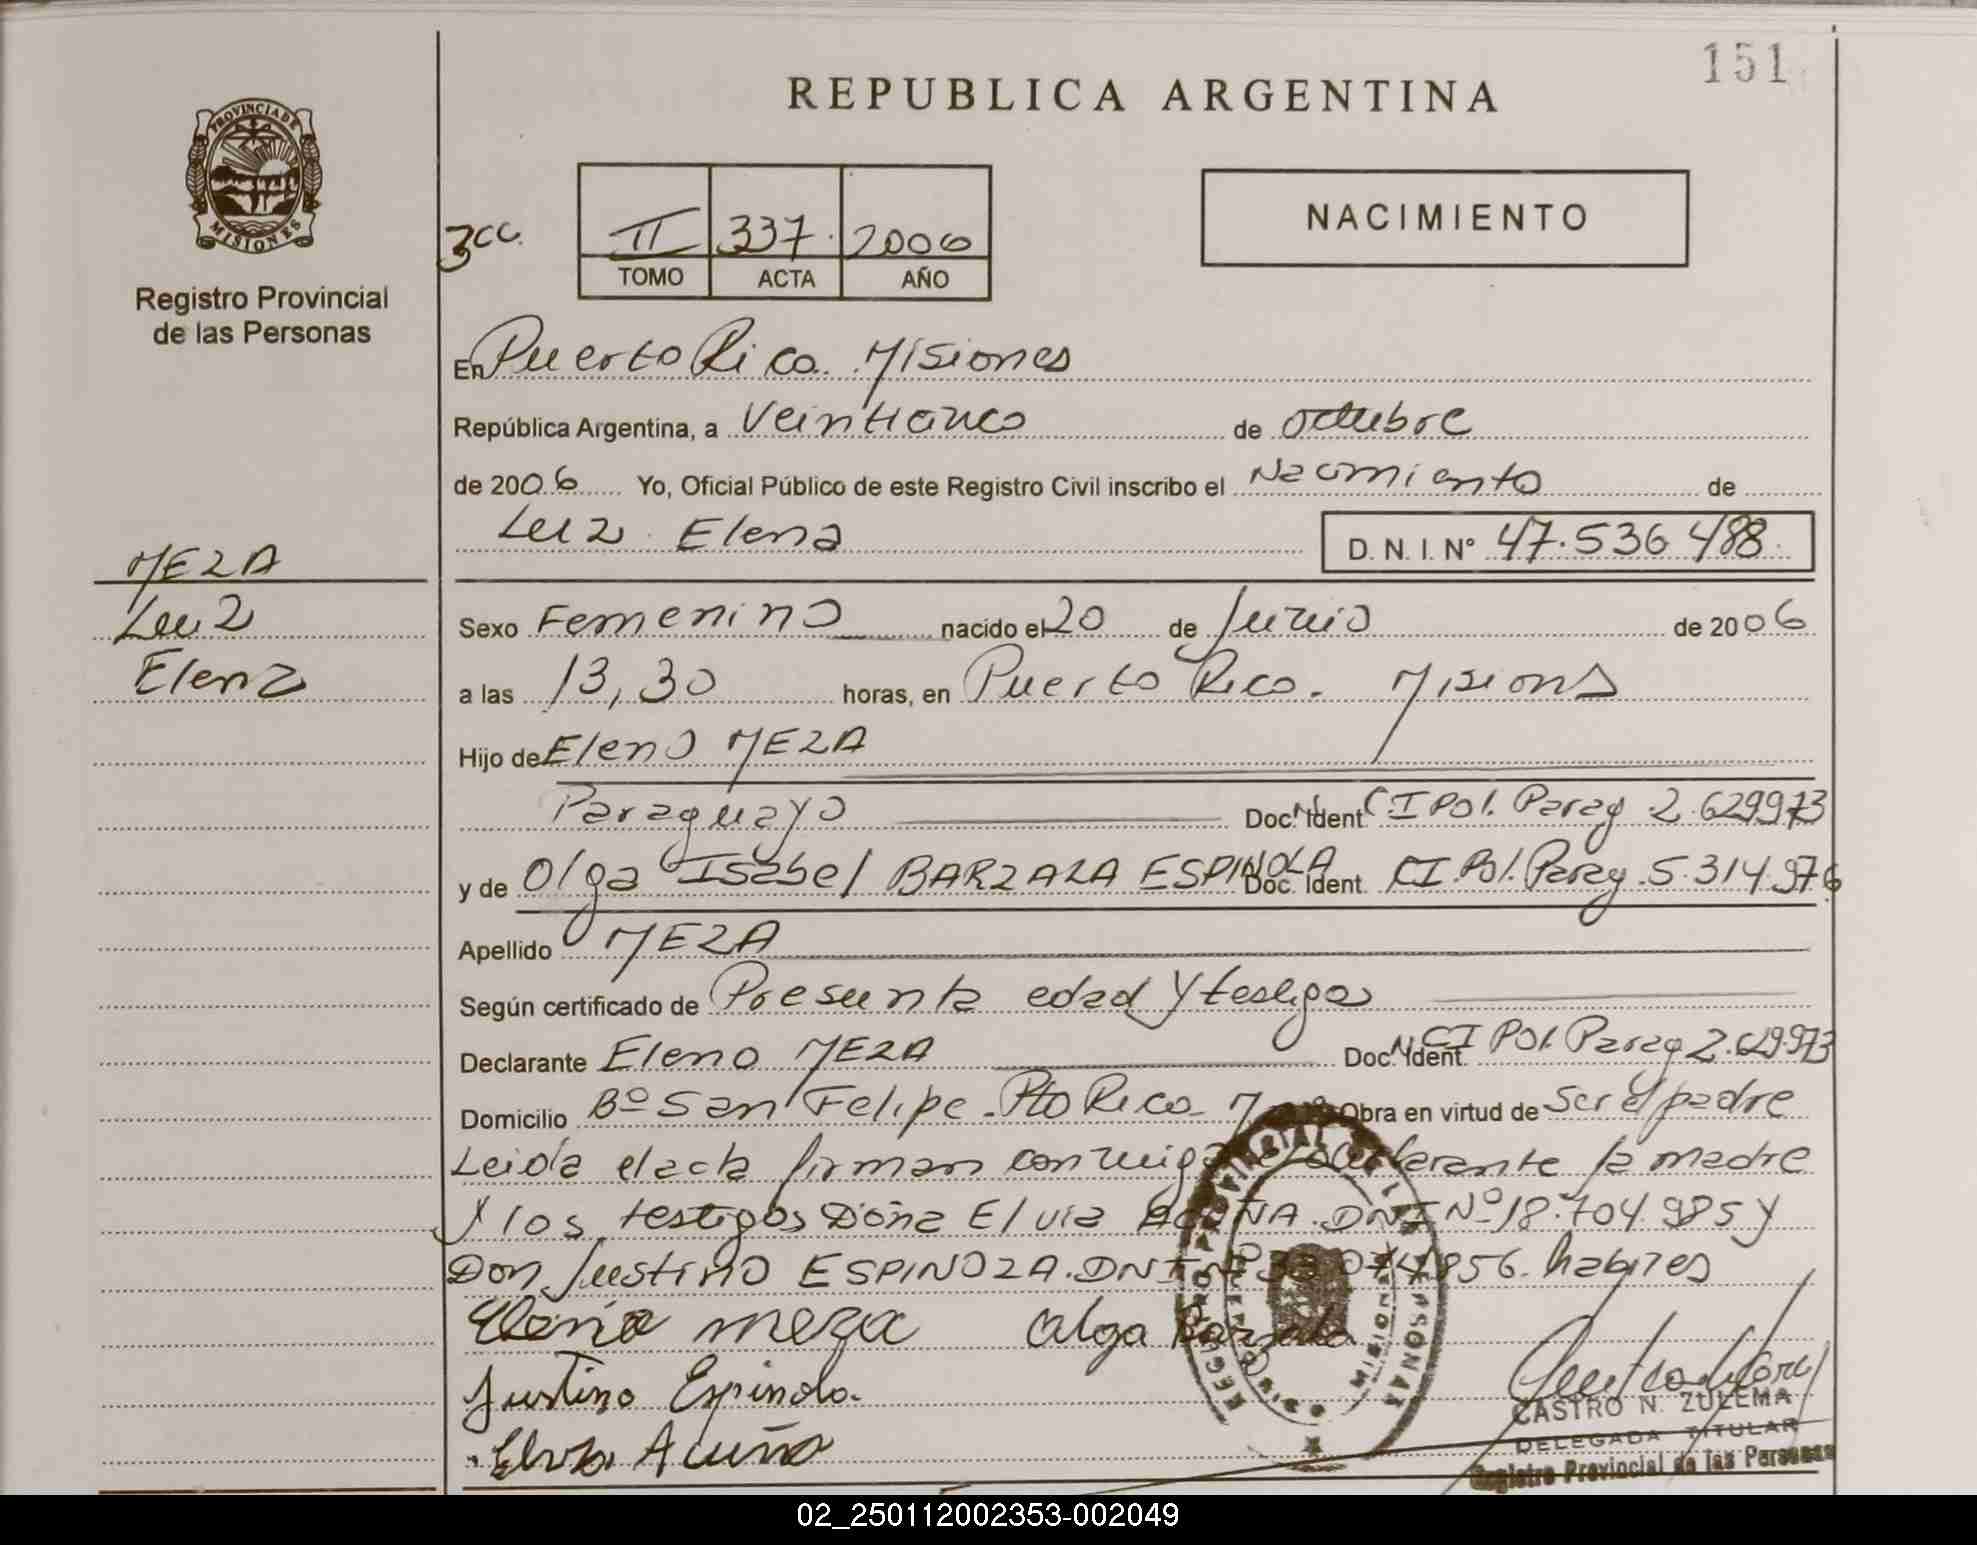 151
REPUBLICA ARGENTINA
PROVINCIA DE
MISIONES
Registro Provincial
de las Personas
3cc.
II 337. 2006
TOMO ACTA AÑO
NACIMIENTO
En Puerto Rico. Misiones
República Argentina, a Veinticinco de octubre
de 2006 Yo, Oficial Público de este Registro Civil inscribo el Nacimiento de
Luz Elena D. N. I. Nº 47.536.488.
MEZA
Luz
Elena
Sexo Femenino nacido el 20 de Junio de 2006
a las 13,30 horas, en Puerto Rico. Misiones
Hijo de Eleno MEZA
Paraguayo Doc. Ident CI Pol. Parag. 2.629973
y de Olga Isabel BARZALA ESPINOLA Doc. Ident. CI.Pol. Parag. 5.314.976
Apellido MEZA
Según certificado de Presunta edad y testigos
Declarante Eleno MEZA Doc. Ident. CI Pol. Parag 2.629.973
Domicilio Bº San Felipe. Pto Rico. Obra en virtud de ser el padre
Leida el acta firman conmigo el declarante la madre
y los testigos Doña Elvia ACUÑA. DNI Nº 18.704.985 y
Don Justino ESPINOZA. DNI Nº 856. habiles
meza Olga Barzala
Justino Espinola.
Elvia Acuña
CASTRO N. ZULEMA
DELEGADA TITULAR
Registro Provincial de las Personas
REGISTRO PROVINCIAL DE LAS PERSONAS
02_250112002353-002049